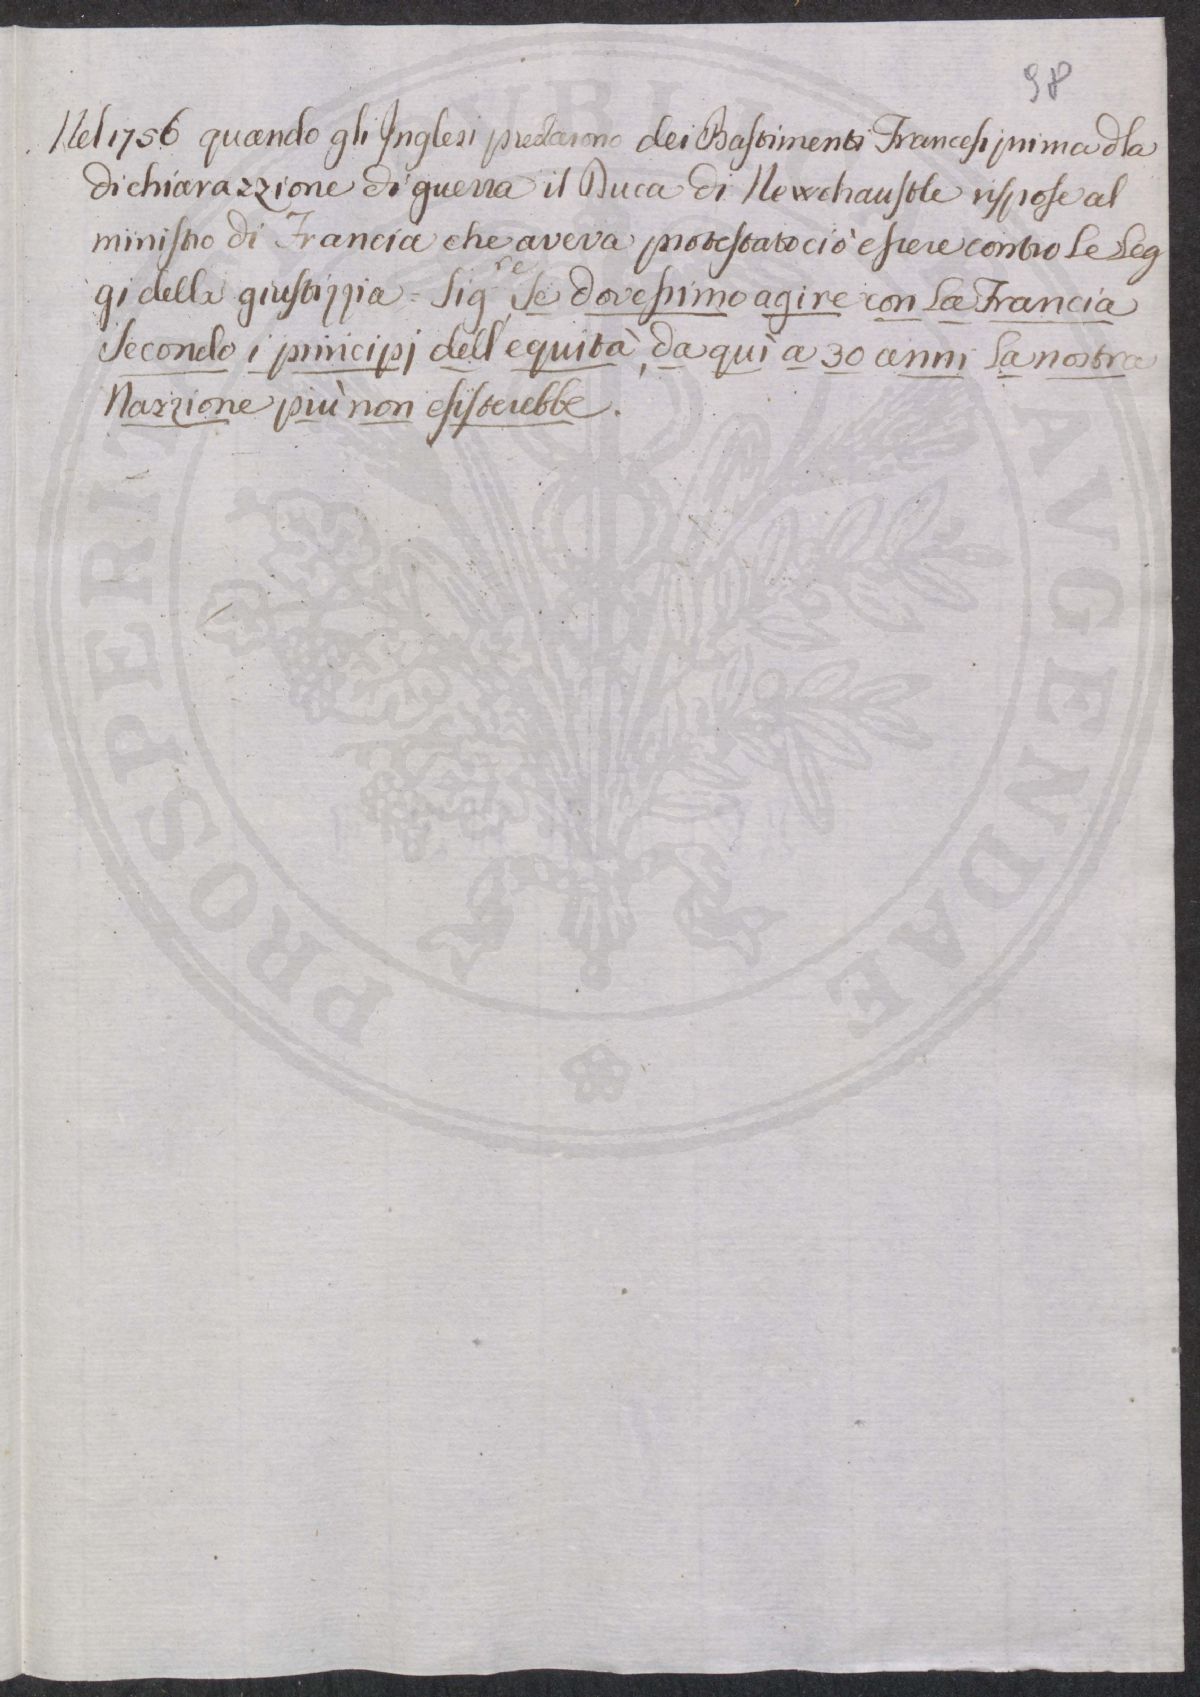 98
Nel 1756 quando gli Inglesi predarono dei Bastimenti Francesi prima dla
dichiarazzione di guerra il Duca di Newchaustle rispose al
ministro di Francia che aveva protestato ciò essere contro le Leg
gi della giustizzia = Sig.re se dovessimo agire con la Francia
secondo i principj dell'equità, da quì a 30 anni la nostra
Nazzione più non esisterebbe.
PROSPERITATI PUBLICAE AUGENDAE